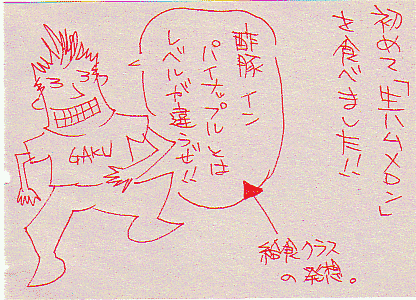 初めて「生ハムメロン」
を食べました!!
酢豚 イン
パイナップルとは
レベルが違うぜ!!
GAKU
給食クラス
の発想。